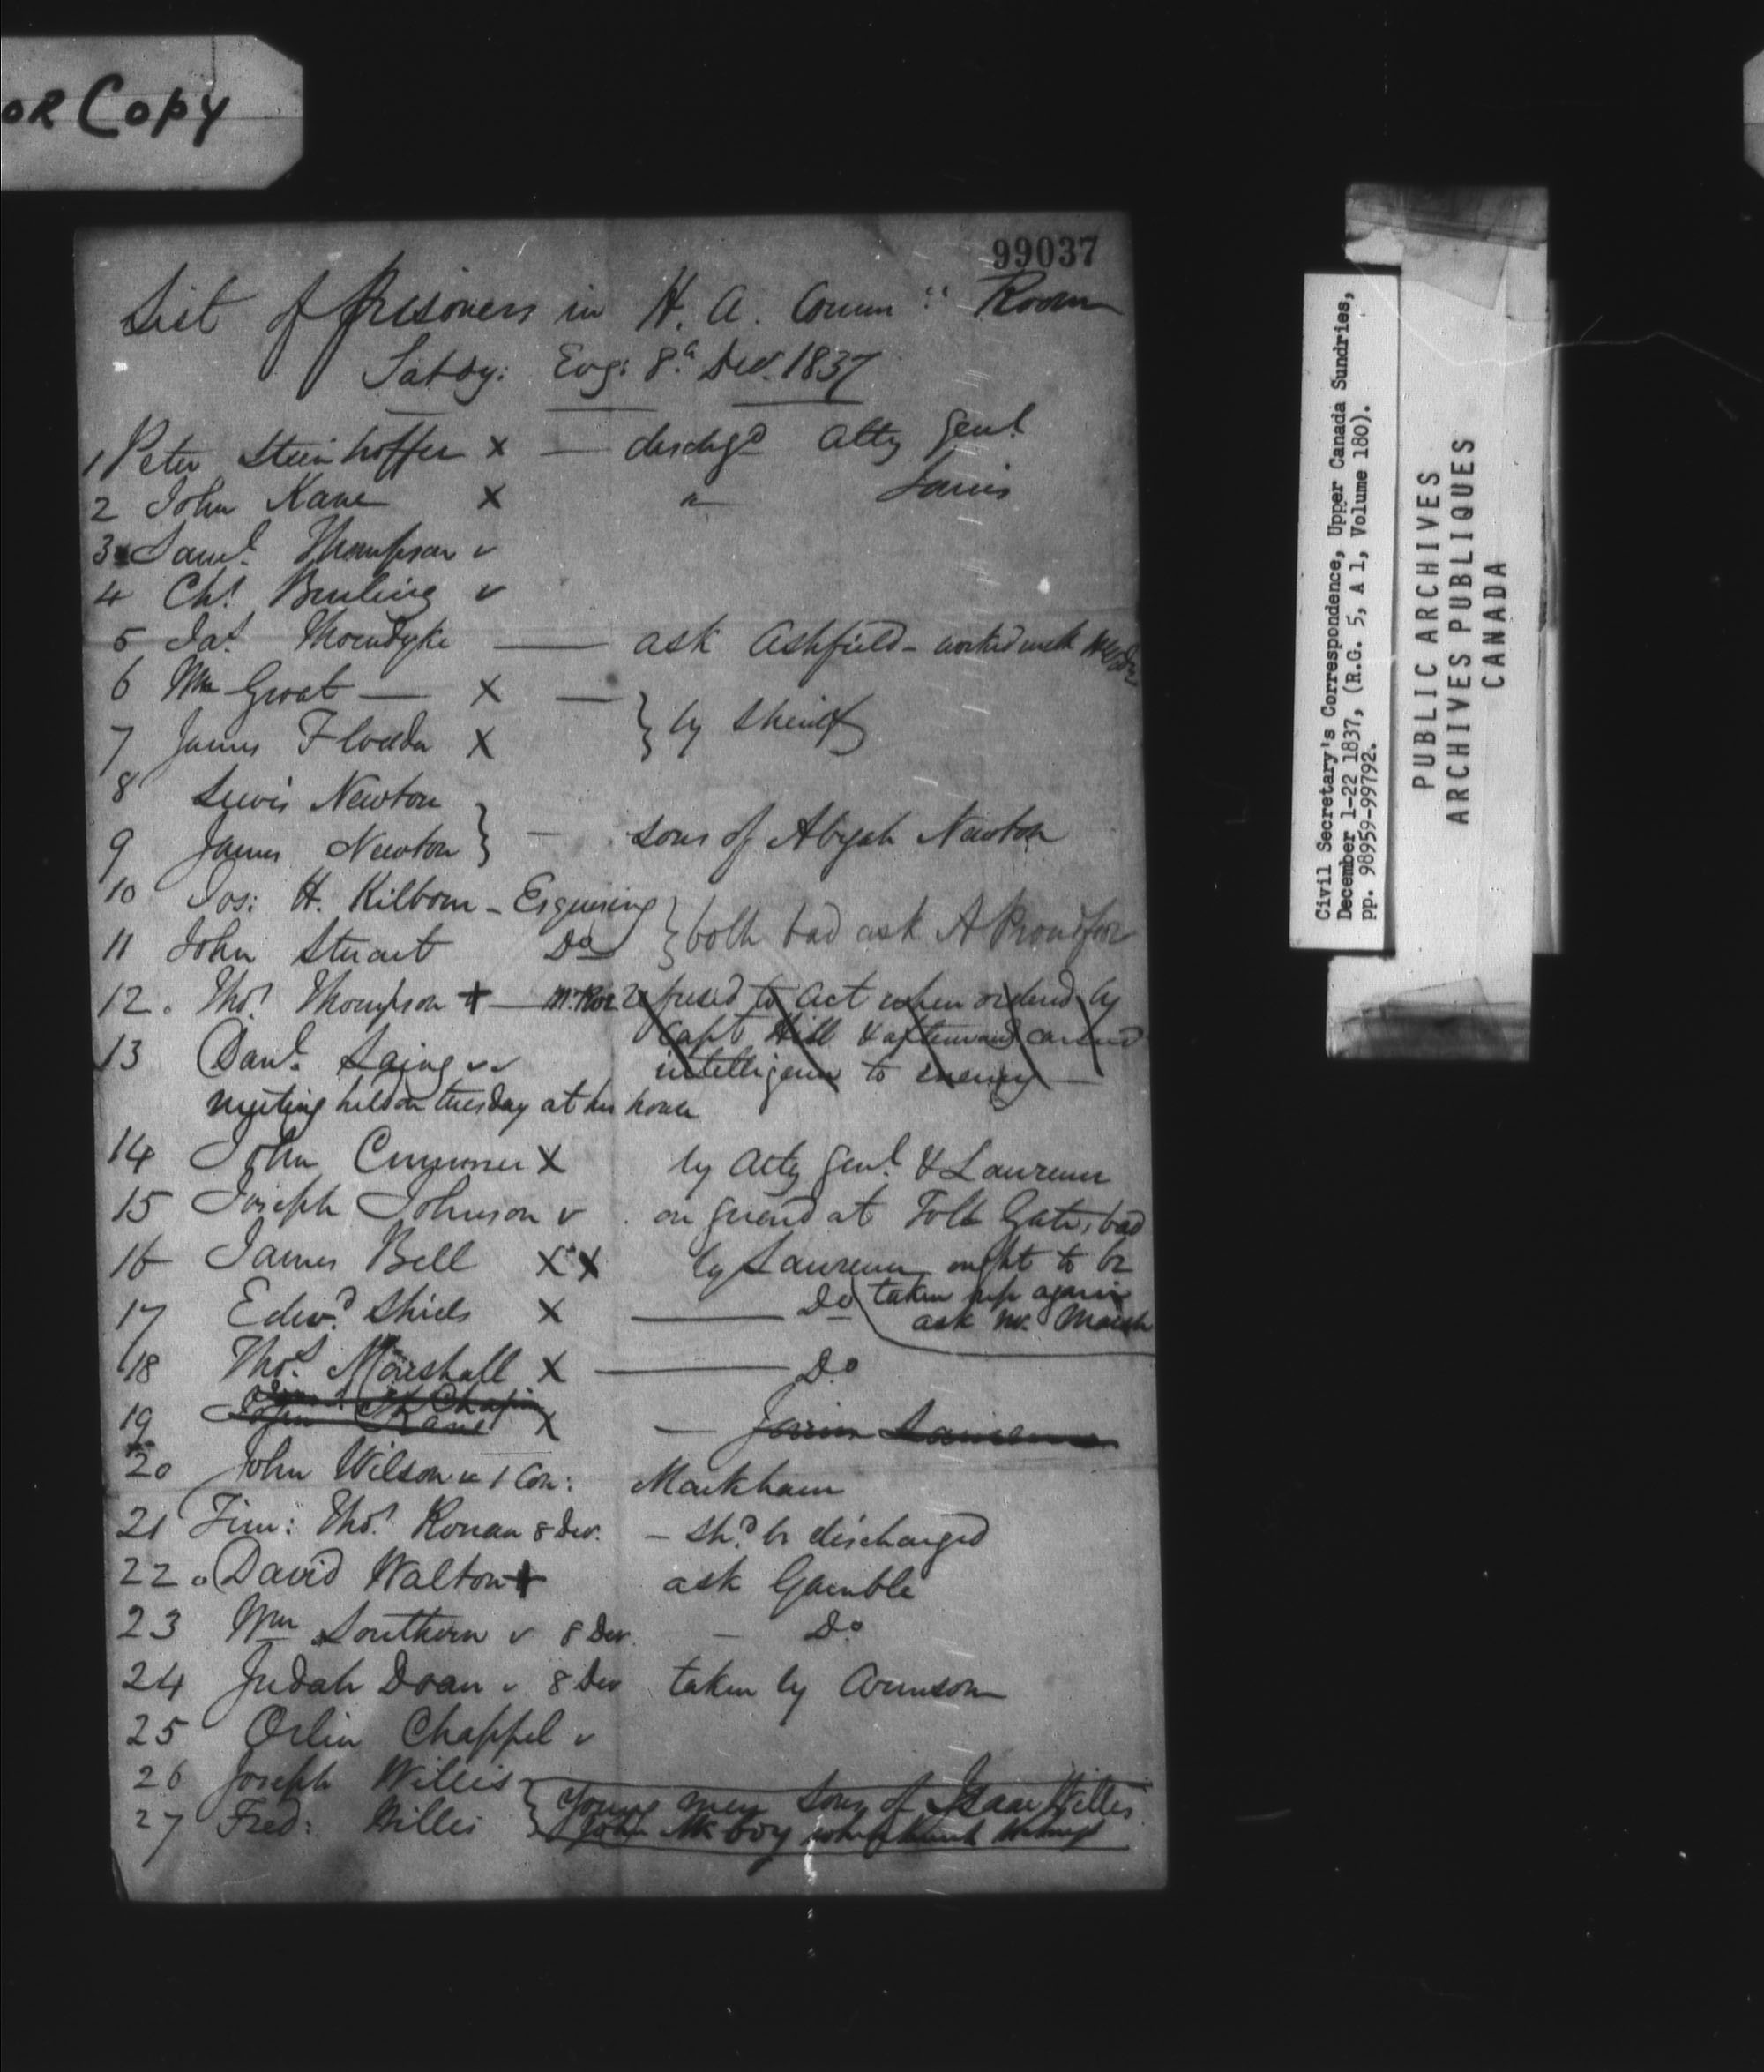 OR Copy
99037
List of Prisoners in H. A. Comm:: Room
Satdy: Evg: 8.th Dec. 1837
1 Peter Steinhoffer x — dischgd Atty Genl
2 John Kane x " Jarvis
3 Saml. Thompson v
4 Chs. v
5 Jas. Thorndyke — ask Ashfield - worked with
6 Wm Groat — x —
7 James x } by Sheriff
8 Lewis Newton
9 James Newton } — sons of Abijah Newton
10 Jos: H. Kilborn - Esquesing
11 John Stuart Do } both bad ask A Proudfoot
12. Thos. Thompson + — refused to act when ordered by
Capt Hill & afterward carried
13 Danl. Laing v v intelligence to enemy —
meeting held on tuesday at his house
14 John x by Atty Genl. & Laurence
15 Joseph Johnson v on guard at Toll Gate, bad
16 James Bell x x by Laurence ought to be
taken up again
17 Edwd. Shiels x — Do ask Mr. Marsh
18 Thos. Marshall x — Do
19 John Kane x —
20 John Wilson v 1 Con: Markham
21 Tim: Thos. Ronan 8 Dec. — shd. be discharged
22 David Walton + ask Gamble
23 Wm Southern v 8 Dec. — Do
24 Judah Doan v 8 Dec taken by
25 Orlin Chappel v
26 Joseph Willis
27 Fred: Willis } young men sons of Isaac Willis
Civil Secretary's Correspondence, Upper Canada Sundries,
December 1-22 1837, (R.G. 5, A 1, Volume 180).
pp. 98959-99792.
PUBLIC ARCHIVES
ARCHIVES PUBLIQUES
CANADA